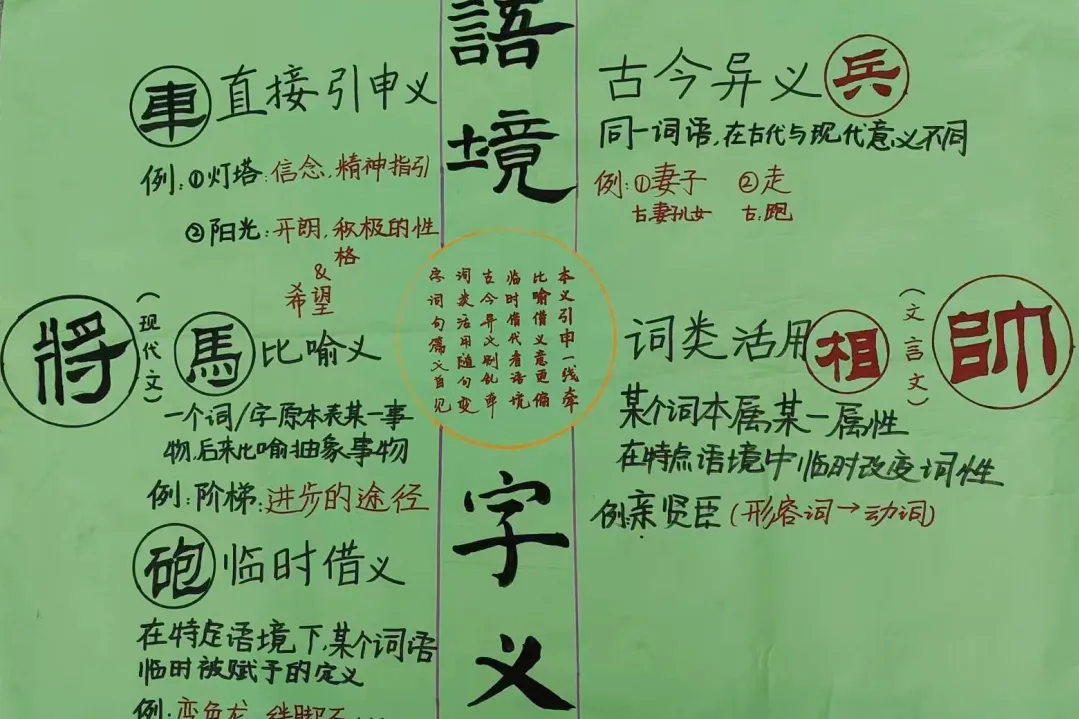 語境
字义
將
(现代文)
車 直接引申义
例:①灯塔:信念,精神指引
②阳光:开朗,积极的性
格
&
希望
馬 比喻义
一个词/字原本表某一事
物,后来比喻抽象事物
例:阶梯:进步的途径
砲 临时借义
在特定语境下,某个词语
临时被赋予的定义
例:变色龙
本义引申一线牵
比喻借义意更偏
临时借代看语境
古今异义别乱牵
词类活用随句变
字词句篇义自见
古今异义 兵
同一词语,在古代与现代意义不同
例:①妻子 ②走
古:妻子儿女 古:跑
词类活用 相
(文言文)
帥
某个词本属某一属性
在特点语境中临时改变词性
例:亲贤臣(形容词→动词)